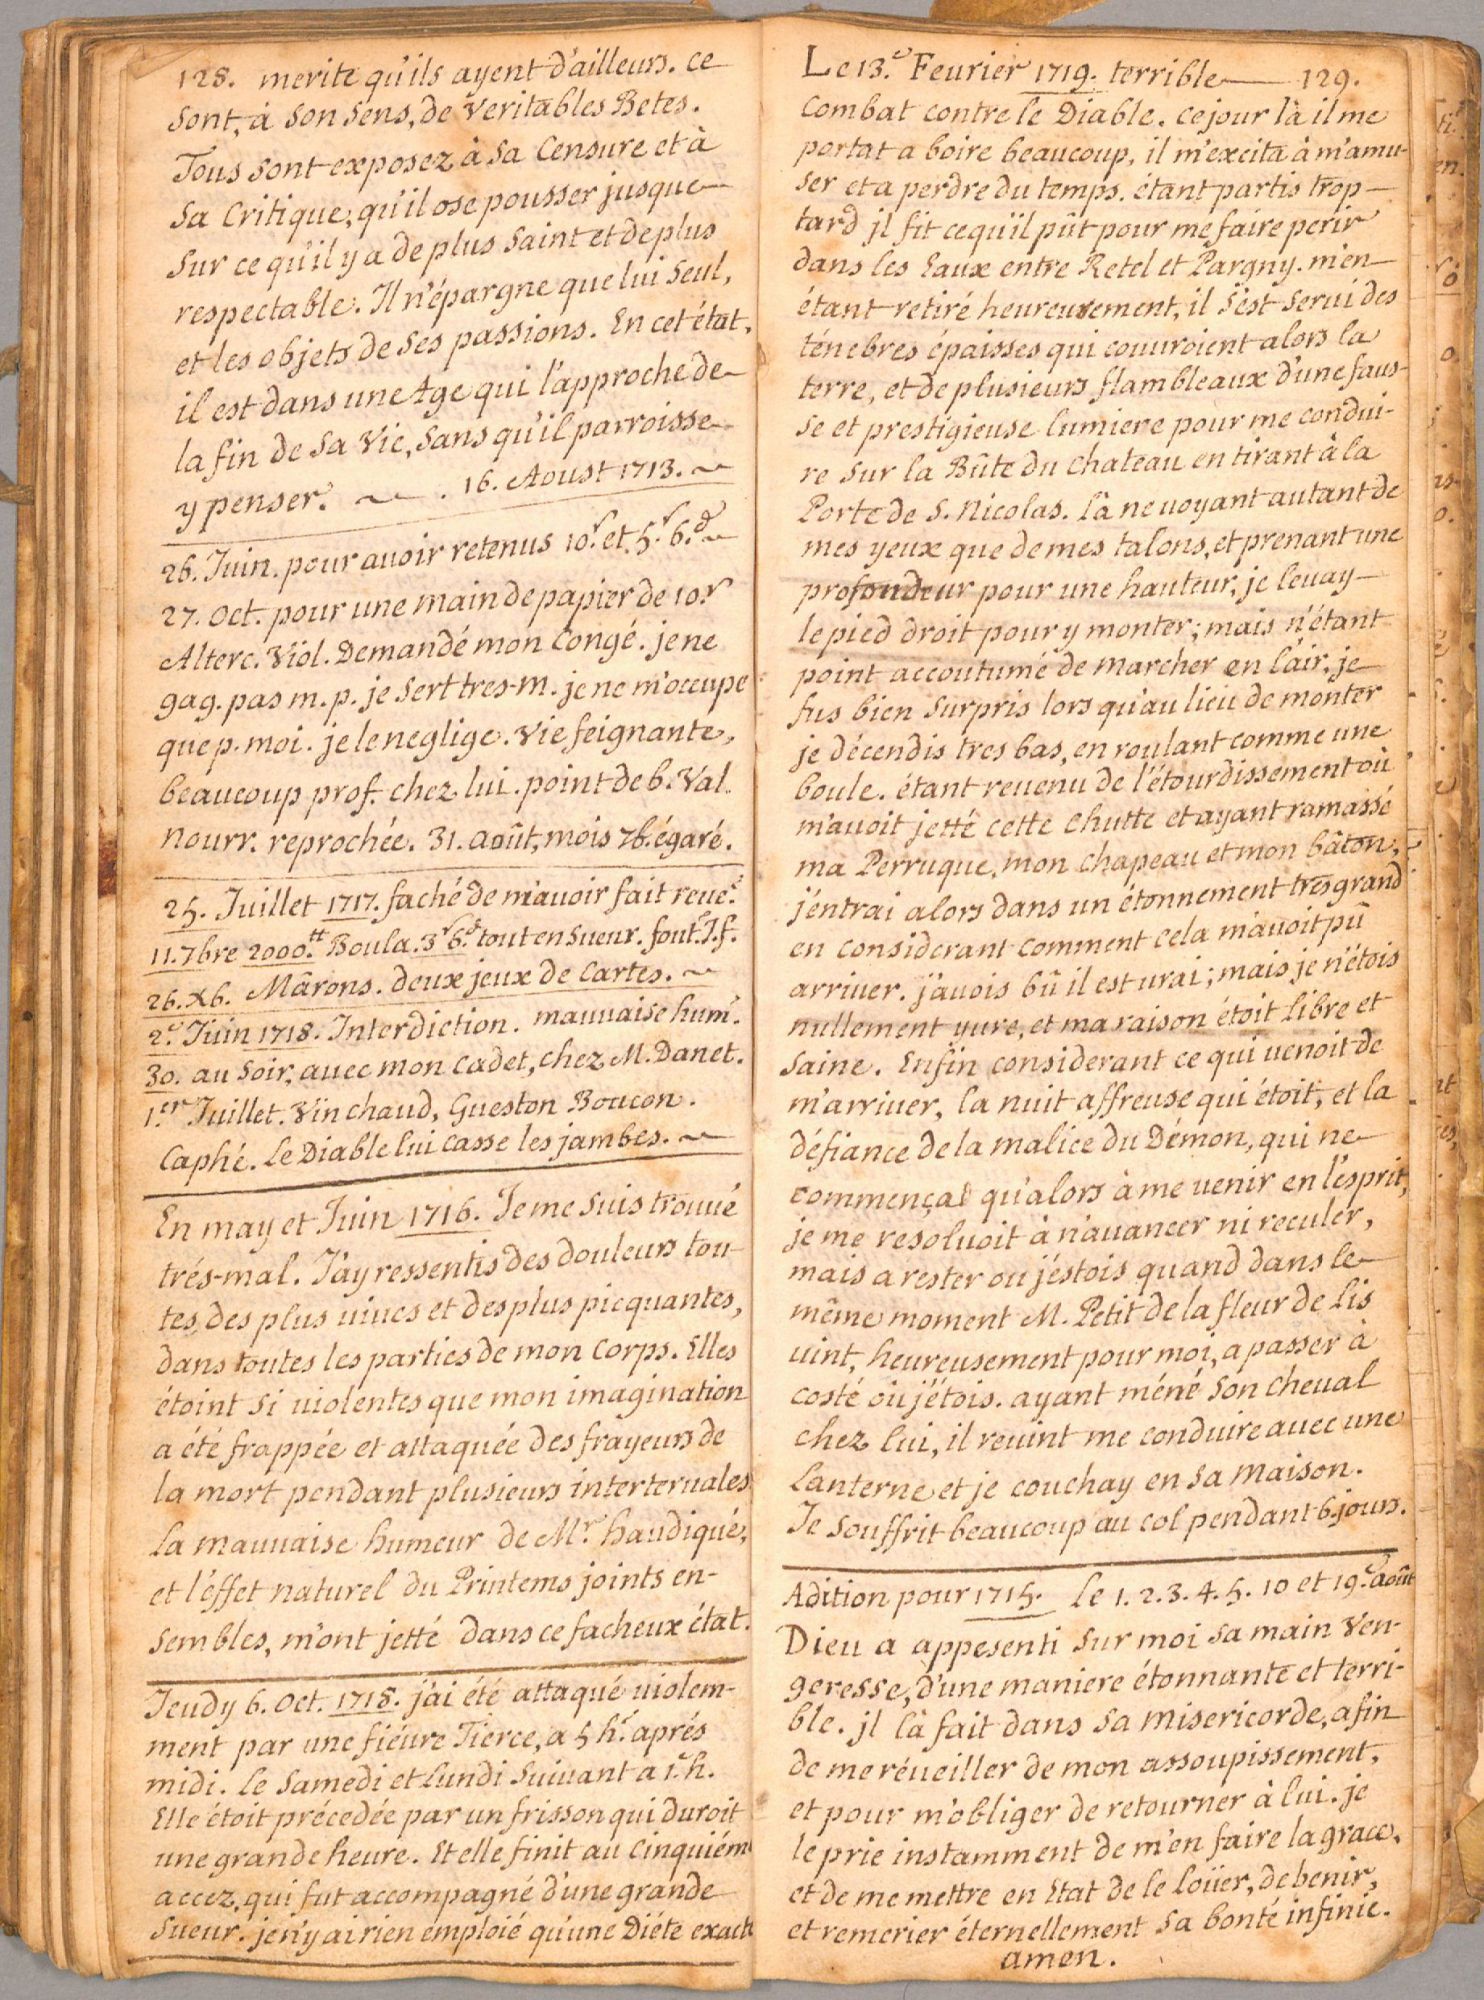 128. merite qu'ils ayent d'ailleurs. ce
sont, à son sens, de veritables Betes.
Tous sont exposez à sa Censure et à
sa Critique, qu'il ose pousser jusque
sur ce qu'il y a de plus saint et de plus
respectable. Il n'épargne que lui seul,
et les objets de ses passions. En cet état,
il est dans une Age qui l'approche de
la fin de sa vie, sans qu'il parroisse
y penser. ~ . 16. Aoust 1713. ~
26. Juin. pour avoir retenus 10.s et 5.s 6.d ~
27. Oct. pour une main de papier de 10.s
Alterc. Viol. Demandé mon Congé. je ne
gag. pas m. p. je sert tres-m. je ne m'occupe
que p. moi. je le neglige. Vie feignante,
beaucoup prof. chez lui. point de b. Val.
nourr. reprochée. 31. août, mois 7b. égaré.
25. Juillet 1717. faché de m'avoir fait reve.
11. 7bre 2000.tt Boula. 3.s 6.d tout en sueur. fout. J. f.
26. Xb. Mârons. deux jeux de Cartes. ~
2.e Juin 1718. Interdiction. mauvaise hum.r
30. au soir, avec mon Cadet, chez M. Danet.
1.er Juillet. Vin chaud, Gueston Boucon.
Caphé. Le Diable lui casse les jambes. ~
En may et Juin 1716. Je me suis trouvé
trés-mal. J'ay ressentis des douleurs tou-
tes des plus vives et des plus picquantes,
dans toutes les parties de mon Corps. Elles
étoint si violentes que mon imagination
a été frappée et attaquée des frayeurs de
la mort pendant plusieurs intertervales
La mauvaise humeur de M.r haudiqué,
et l'éffet naturel du Printems joints en-
sembles, m'ont jetté dans ce facheux état.
Jeudy 6. Oct. 1718. j'ai été attaqué violem-
ment par une fiévre Tierce, a 5 h.r aprés
midi. Le Samedi et Lundi suivant a 1. h.
Elle étoit précedée par un frisson qui duroit
une grande heure. Et elle finit au Cinquiém
accez, qui fut accompagné d'une grande
sueur. je n'y ai rien emploié qu'une Diéte exacte
Le 13.e Fevrier 1719. terrible 129.
Combat contre le Diable. ce jour là il me
portat a boire beaucoup, il m'excita à m'amu-
ser et a perdre du temps. étant partis trop
tard jl fit ce qu'il pût pour me faire perir
dans les Eaux entre Retel et Pargny. m'en
étant retiré heureusement, il s'est servi des
ténebres épaisses qui couvroient alors la
terre, et de plusieurs flambleaux d'une faus-
se et prestigieuse lumiere pour me condui-
re sur la Bûte du Chateau en tirant à la
Porte de S. Nicolas. là ne voyant autant de
mes yeux que de mes talons, et prenant une
profondeur pour une hauteur, je levay
le pied droit pour y monter; mais n'étant
point accoutumé de marcher en l'air, je
fus bien surpris lors qu'au lieu de monter
je décendis tres bas, en roulant comme une
boule. étant revenu de l'étourdissement où
m'avoit jetté cette chutte et ayant ramassé
ma Perruque, mon chapeau et mon bâton,
j'entrai alors dans un étonnement tres grand
en considerant comment cela m'avoit pû
arriver. j'avois bû il est vrai; mais je n'étois
nullement yvre, et ma raison étoit libre et
saine. Enfin considerant ce qui venoit de
m'arriver, la nuit affreuse qui étoit, et la
défiance de la malice du Démon, qui ne
commençat qu'alors à me venir en l'esprit,
je me resoluoit à n'avancer ni reculer,
mais a rester ou j'éstois quand dans le
même moment M. Petit de la fleur de Lis
vint, heureusement pour moi, a passer à
costé où j'étois. ayant méné son cheval
chez lui, il revint me conduire avec une
Lanterne et je couchay en sa maison.
Je souffrit beaucoup au col pendant 6. jours.
Adition pour 1715. Le 1. 2. 3. 4. 5. 10 et 19.e août
Dieu a appesenti sur moi sa main Ven-
geresse, d'une maniere étonnante et terri-
ble. jl l'à fait dans sa misericorde, afin
de me réveiller de mon assoupissement,
et pour m'obliger de retourner à lui. je
le prie instamment de m'en faire la grace,
et de me mettre en Etat de le loüer, de benir,
et remerier éternellement sa bonté infinie.
amen.